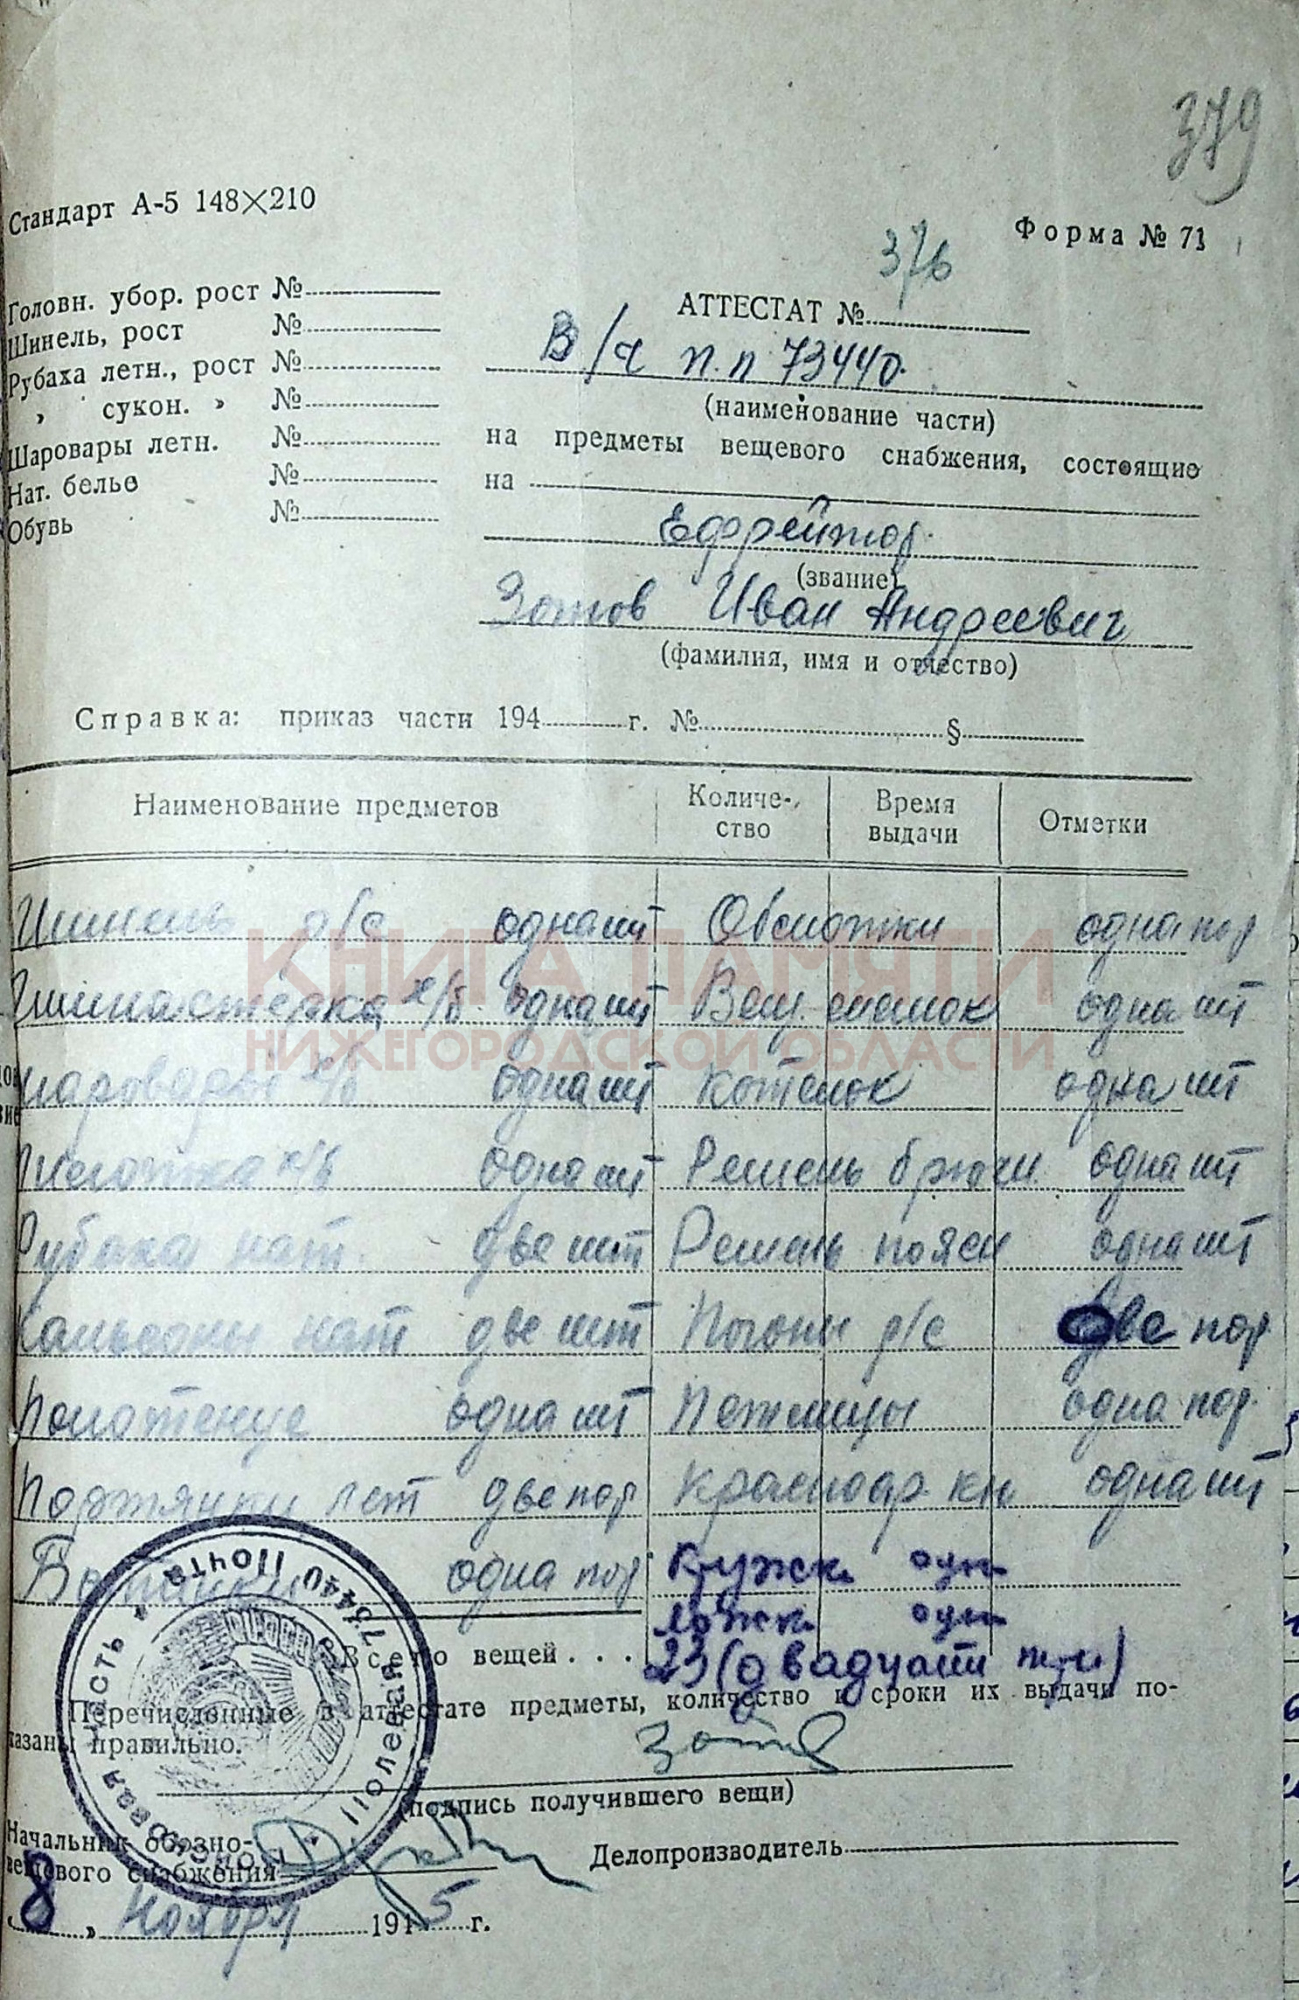 379
Стандарт А-5 148×210
Форма № 71
Головн. убор. рост №
Шинель, рост №
Рубаха летн., рост №
„ сукон. „ №
Шаровары летн. №
Нат. белье №
Обувь №
376
АТТЕСТАТ №
В/ч п.п 73440.
(наименование части)
на предметы вещевого снабжения, состоящие
на
Ефрейтор
(звание)
Зотов Иван Андреевич
(фамилия, имя и отчество)
Справка: приказ части 194 г. № §
Наименование предметов Количе-ство Время выдачи Отметки
Шинель р/с одна шт Обмотки одна пар
Гимнастерка х/б одна шт Вещ. мешок одна шт
Шаровары х/б одна шт Котелок одна шт
Пилотка х/б одна шт Ремень брючн одна шт
Рубаха нат. две шт Ремень поясн одна шт
Кальсоны нат две шт Погоны р/с две пар
Полотенце одна шт Петлицы одна пар.
Портянки лет две пар Красноар. кн одна шт
Ботинки одна пар Кружк одн
Ложк одн
Всего вещей . . . 23 (двадцати три)
Перечисленные в аттестате предметы, количество и сроки их выдачи по-
казаны правильно.
Зотов
(подпись получившего вещи)
Начальник обозно-
вещевого снабжения
Делопроизводитель
8 „ Ноября 1945 г.
Полевая Почта 73440
Войсковая часть
КНИГА ПАМЯТИ
НИЖЕГОРОДСКОЙ ОБЛАСТИ